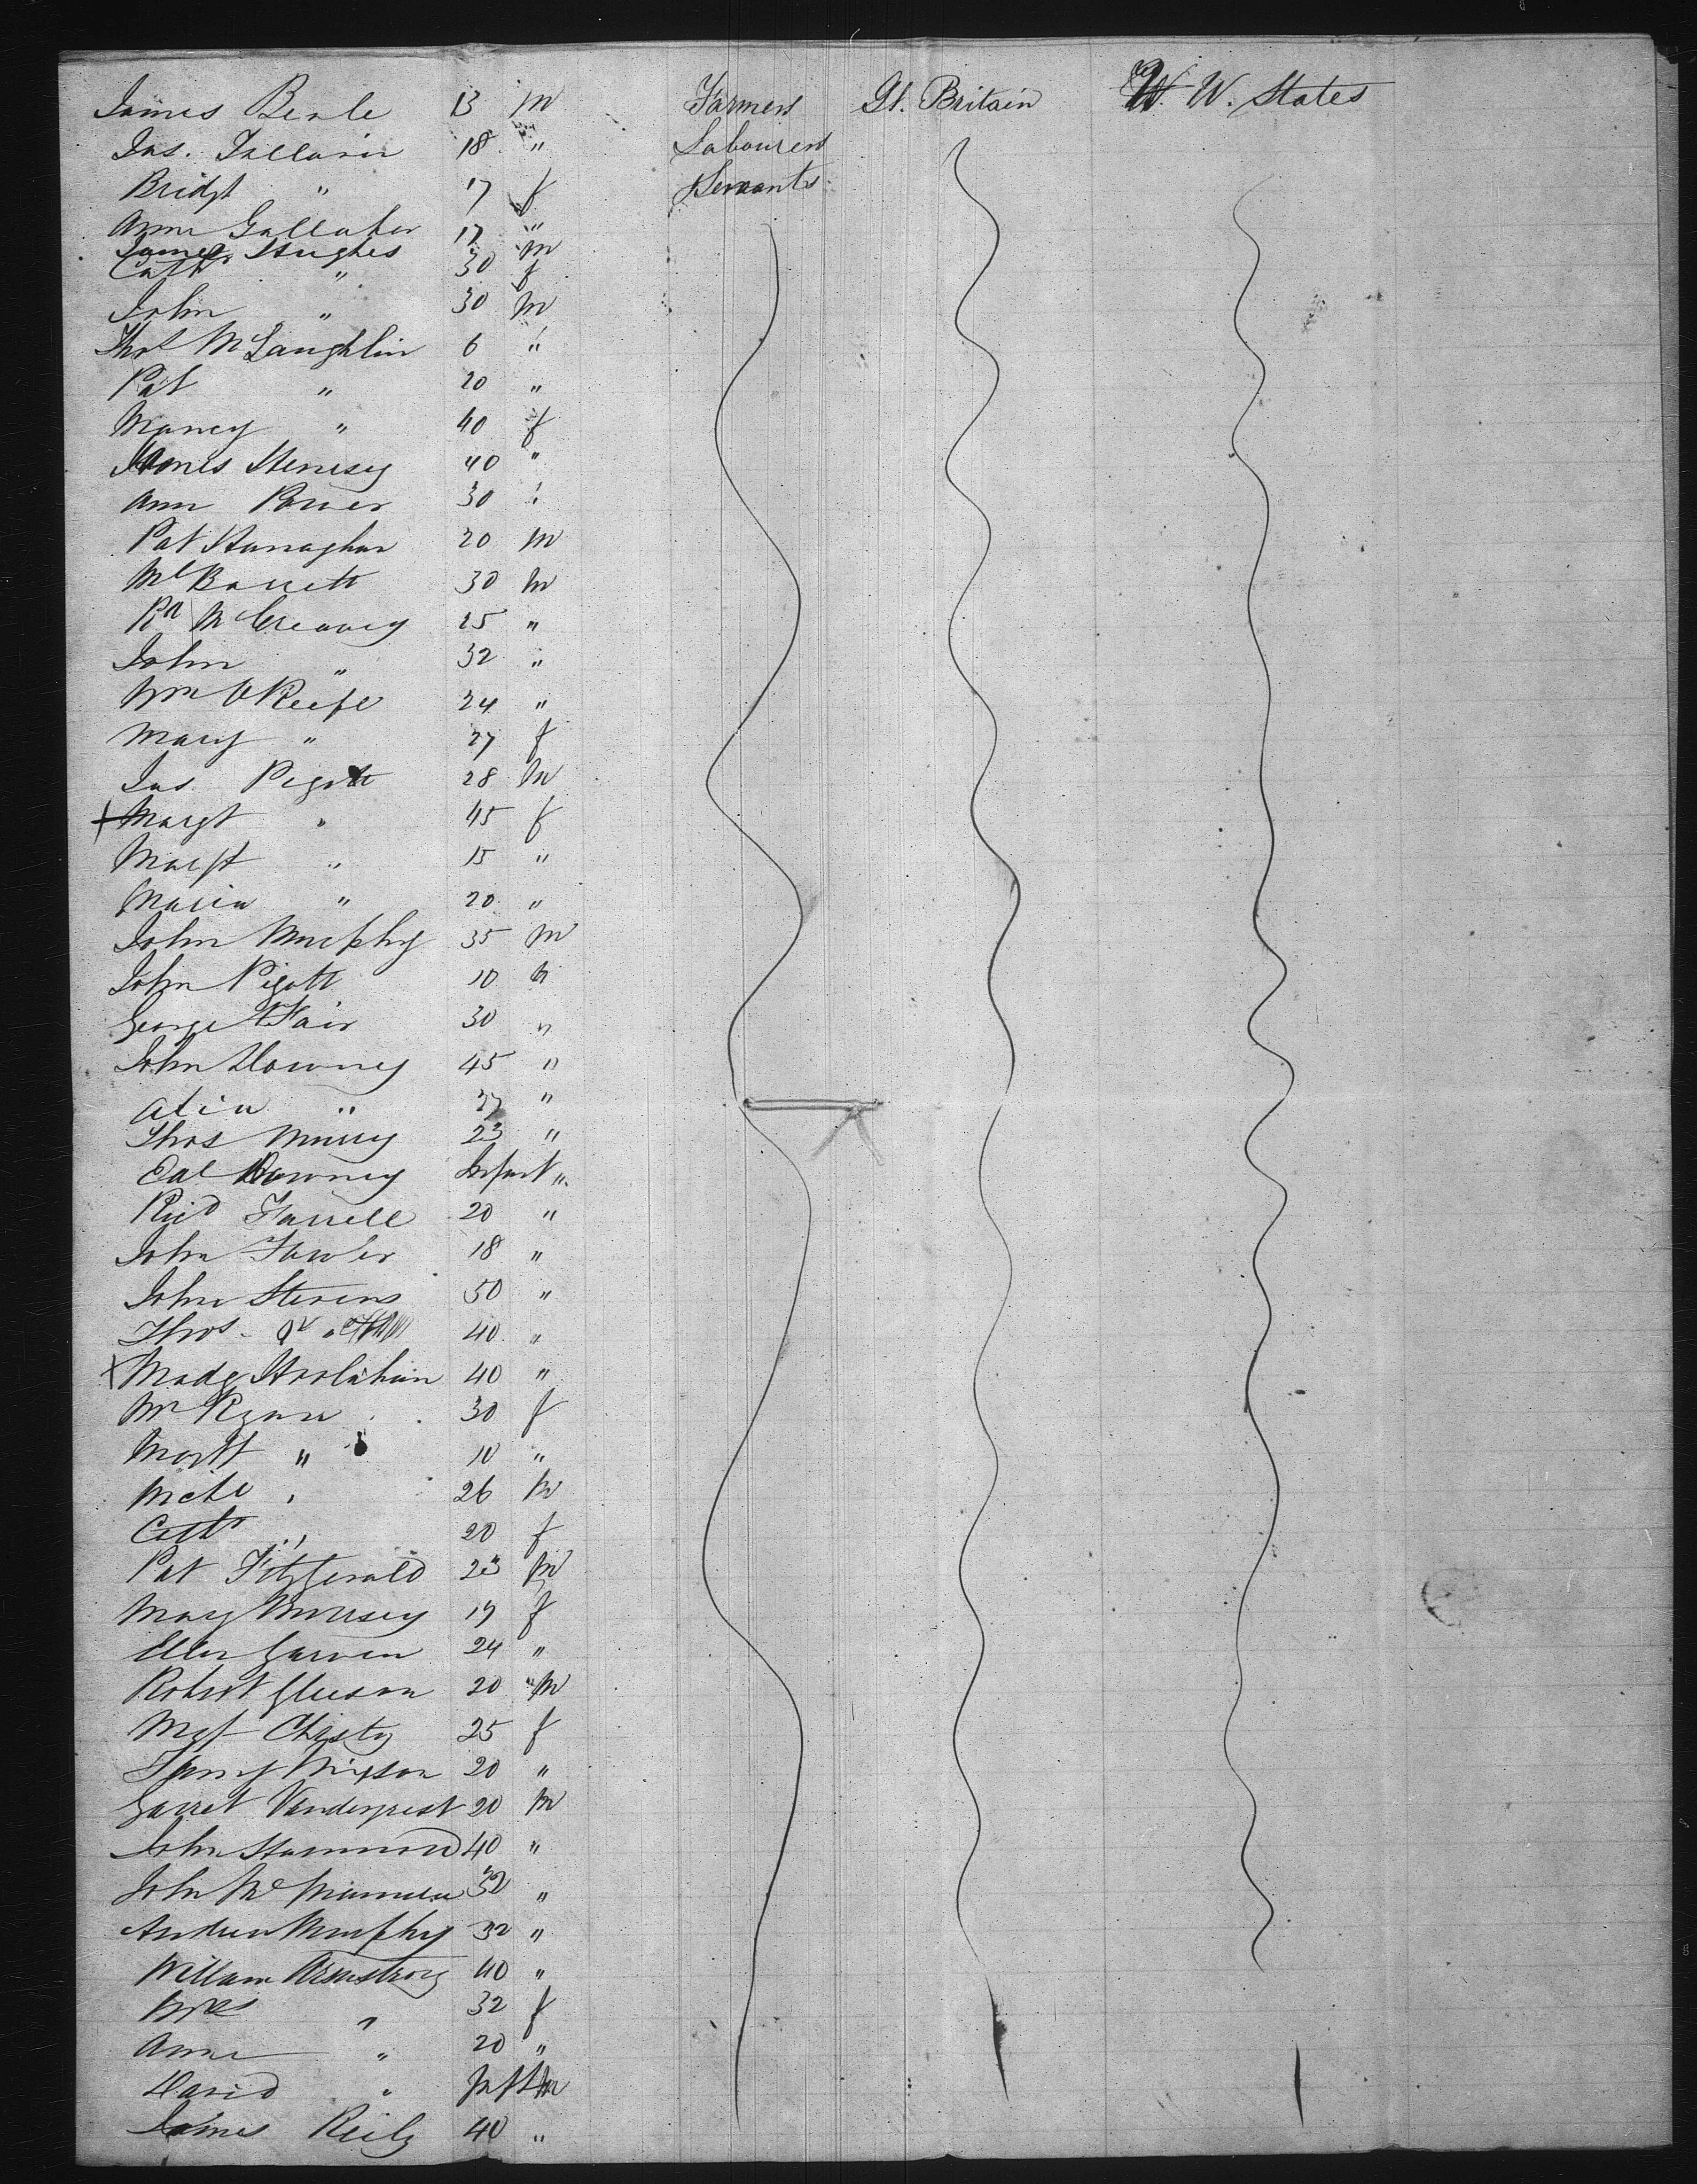 James Berle 13 m Farmers Gt. Britain U. States
Jas. Tallavin 18 " Labourers
Bridgt " 17 f Servants
Anne Gallaher 17 "
James Hughes m
Cath " 30 f
John " 30 m
Thos McLaughlin 6 "
Pat " 20 "
Nancy " 40 f
James Henesey 40 "
Ann Power 30 "
Pat Hanaghan 20 m
Ml Barrett 30 m
Rd McCreavey 25 "
John " 32 "
Wm O'Keefe 24 "
Mary " 27 f
Jas Pigott 28 m
+ Margt " 45 f
Margt " 15 "
Maria " 20 "
John Murphy 35 m
John Pigott 10 "
George Fair 30 "
John Downey 45 "
" 27 "
Thos Murry 23 "
Downey Infant "
Ricd Farrell 20 "
John Fowler 18 "
John Stevens 50 "
Thos 40 "
+ Madg Hoolahan 40 "
M Ryan 30 f
Margt " 10 "
Michl " 26 m
Cath " 20 f
Pat Fitzgerald 23 m
Mary 19 f
Ellen Garven 24 "
Robert Gleeson 20 " m
Mgt Christy 25 f
Fanny Nixson 20 "
Garret Vandergrest 20 m
John Hammond 40 "
John McManus 32 "
Andrew Murphy 32 "
William Armstrong 40 "
Mrs " 32 f
Anne " 20 "
David " Inft m
James Reily 40 "